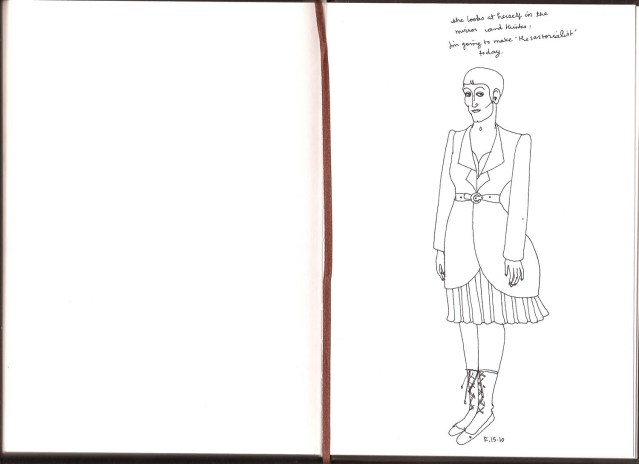 she looks at herself in the
mirror and thinks:
i'm going to make "the sartorialist"
today.
5.15.10